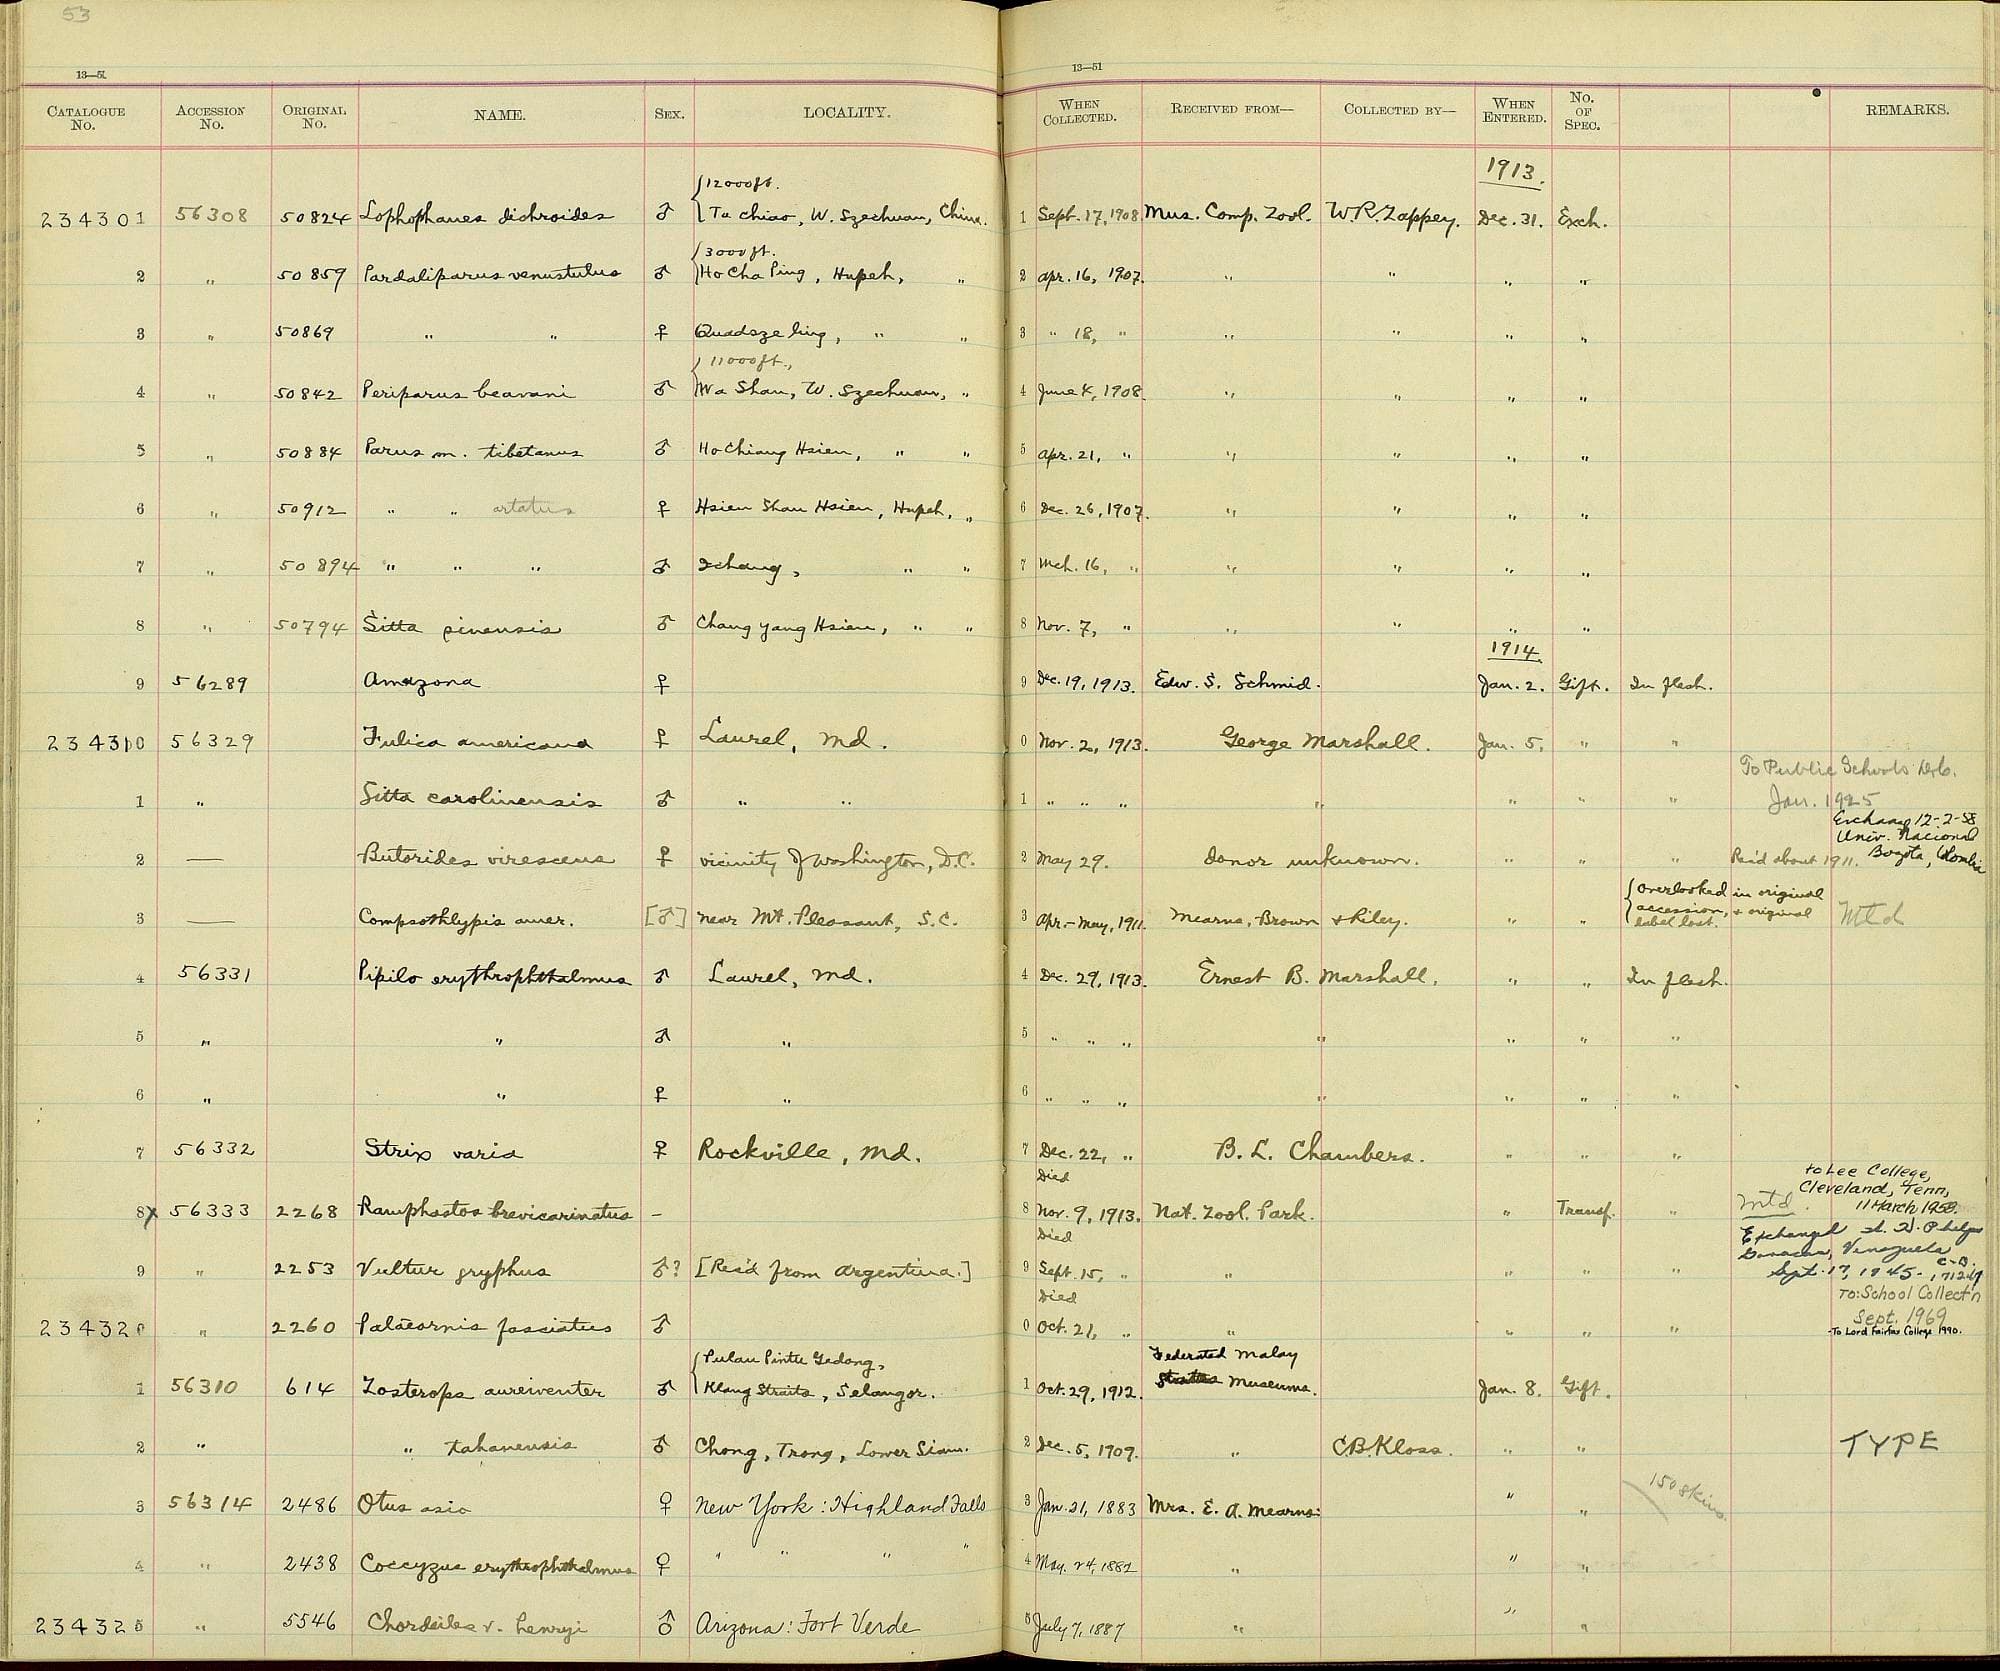 53
13—51
13—51
CATALOGUE No. ACCESSION No. ORIGINAL No. NAME. SEX. LOCALITY. WHEN COLLECTED. RECEIVED FROM— COLLECTED BY— WHEN ENTERED. No. OF SPEC. REMARKS.
1913.
{12000ft.
234301 56308 50824 Lophophanes dichroides ♂ Ta Chiao, W. Szechuan, China. 1 Sept. 17, 1908 Mus. Comp. Zool. W.R. Zappey. Dec. 31. Exch.
{3000ft.
2 " 50859 Pardaliparus venustulus ♂ Ho Cha Ping, Hupeh, " 2 Apr. 16, 1907. " " " "
3 " 50869 " " ♀ Quadsze ling, " " 3 " 18, " " " " "
{11000ft.,
4 " 50842 Periparus beavani ♂ Wa Shan, W. Szechuan, " 4 June 4, 1908. " " " "
5 " 50884 Parus m. tibetanus ♂ Ho Chiang Hsien, " " 5 Apr. 21, " " " " "
6 " 50912 " " artatus ♀ Hsien Shan Hsien, Hupeh, " 6 Dec. 26, 1907. " " " "
7 " 50894 " " " ♂ Ichang, " " 7 Mch. 16, " " " " "
8 " 50794 Sitta sinensis ♂ Chang Yang Hsien, " " 8 Nov. 7, " " " " "
1914.
9 56289 Amazona ♀ 9 Dec. 19, 1913. Edw. S. Schmid. Jan. 2. Gift. In flesh.
234310 56329 Fulica americana ♀ Laurel, Md. 0 Nov. 2, 1913. George Marshall. Jan. 5. " "
To Public Schools
1 " Sitta carolinensis ♂ " " 1 " " " " " " " Jan. 1925
Exchange 12-2-58
Univ. Nacional
2 — Butorides virescens ♀ vicinity of Washington, D.C. 2 May 29. Donor unknown. " " " Rec'd about 1911. Bogota, Colombia
{Overlooked in original
3 — Compsothlypis amer. [♂] near Mt. Pleasant, S.C. 3 Apr.-May, 1911. Mearns, Brown & Riley. " " accession, & original Mtd
label lost.
4 56331 Pipilo erythrophthalmus ♂ Laurel, Md. 4 Dec. 29, 1913. Ernest B. Marshall. " " In flesh.
5 " " ♂ " 5 " " " " " " "
6 " " ♀ " 6 " " " " " " "
7 56332 Strix varia ♀ Rockville, Md. 7 Dec. 22, " B. L. Chambers. " " "
Died to Lee College,
Cleveland, Tenn,
8x 56333 2268 Ramphastos brevicarinatus – 8 Nov. 9, 1913. Nat. Zool. Park. " Transf. " Mtd. 11 March 1958.
Died Exchanged W. H. Phelps
Caracas, Venezuela
9 " 2253 Vultur gryphus ♂? [Rec'd from Argentina.] 9 Sept. 15, " " " " " Sept. 17, 1945-
Died To: School Collect'n
Sept. 1969
234320 " 2260 Palaeornis fasciatus ♂ 0 Oct. 21, " " " " " -To Lord Fairfax College 1990.
{Pulau Pintu Gedong, Federated Malay
1 56310 614 Zosterops aureiventer ♂ Klang Straits, Selangor. 1 Oct. 29, 1912. Museums. Jan. 8. Gift.
2 " " tahanensis ♂ Chong, Trong, Lower Siam. 2 Dec. 5, 1909. " C.B. Kloss. " " TYPE
3 56314 2486 Otus asio ♀ New York: Highland Falls 3 Jan. 21, 1883 Mrs. E. A. Mearns: " " 150 skins
4 " 2438 Coccyzus erythrophthalmus ♀ " " " " 4 May. 24, 1882 " " "
234325 " 5546 Chordeiles v. henryi ♂ Arizona: Fort Verde 5 July 7, 1887 " " "